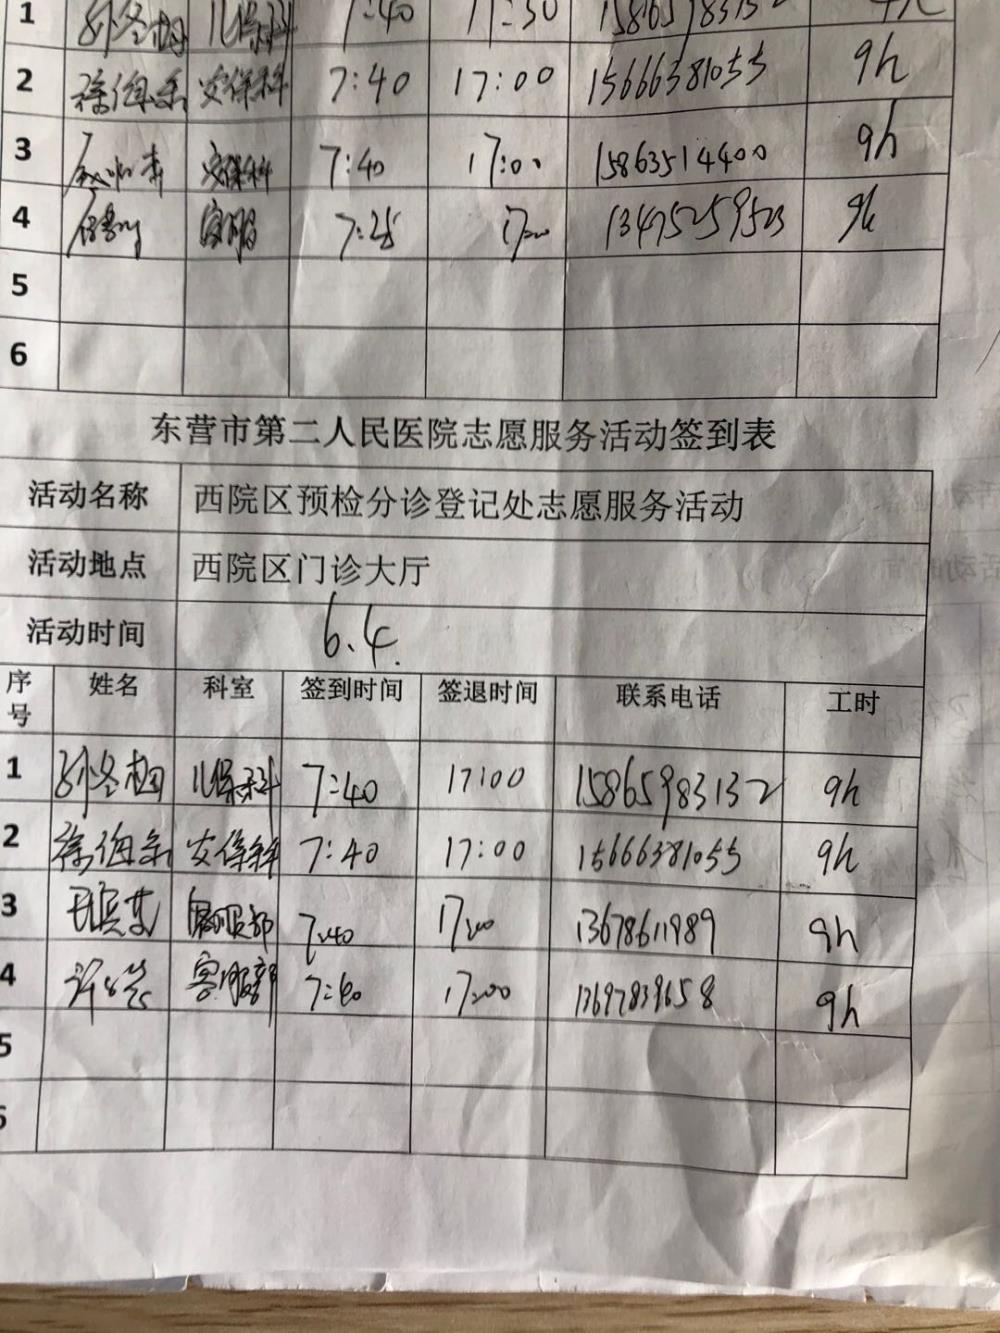 1 儿保科 7:40 15865983132
2 安保科 7:40 17:00 15666381055 9h
3 安保科 7:40 17:00 15863514400 9h
4 客服 7:25 1700 13475259523 9h
5
6
东营市第二人民医院志愿服务活动签到表
活动名称 西院区预检分诊登记处志愿服务活动
活动地点 西院区门诊大厅
活动时间 6.4.
序号 姓名 科室 签到时间 签退时间 联系电话 工时
1 孙冬梅 儿保科 7:40 17:00 15865983132 9h
2 安保科 7:40 17:00 15666381055 9h
3 客服部 7:40 1700 13678611989 9h
4 客服部 7:40 17:00 13697839658 9h
5